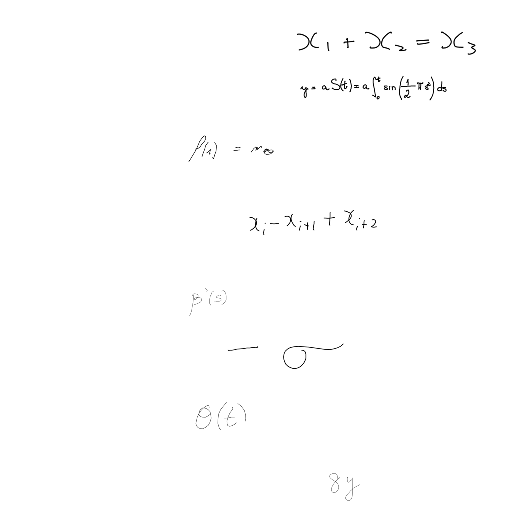 x₁ + x₂ = x₃
y = a S(t) = a ∫₀ᵗ sin(½ π s²) ds
x_i − x_{i+1} + x_{i+2}
β'(s)
− σ
θ(t)
8y